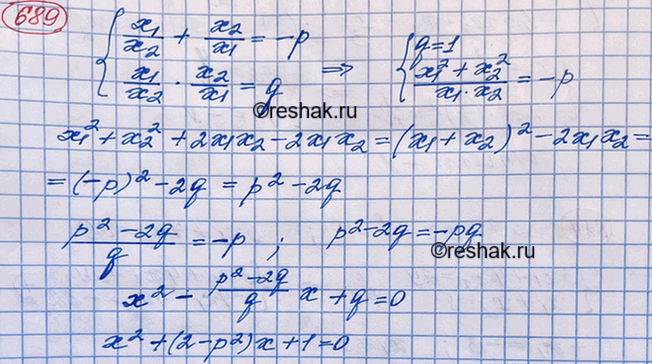 689
{ x₁/x₂ + x₂/x₁ = -p
{ x₁/x₂ · x₂/x₁ = q ⇒ { q=1
{ (x₁² + x₂²)/(x₁·x₂) = -p
©reshak.ru
x₁² + x₂² + 2x₁x₂ - 2x₁x₂ = (x₁ + x₂)² - 2x₁x₂ =
= (-p)² - 2q = p² - 2q
(p² - 2q)/q = -p ; p² - 2q = -pq
©reshak.ru
x² - (p² - 2q)/q x + q = 0
x² + (2 - p²)x + 1 = 0